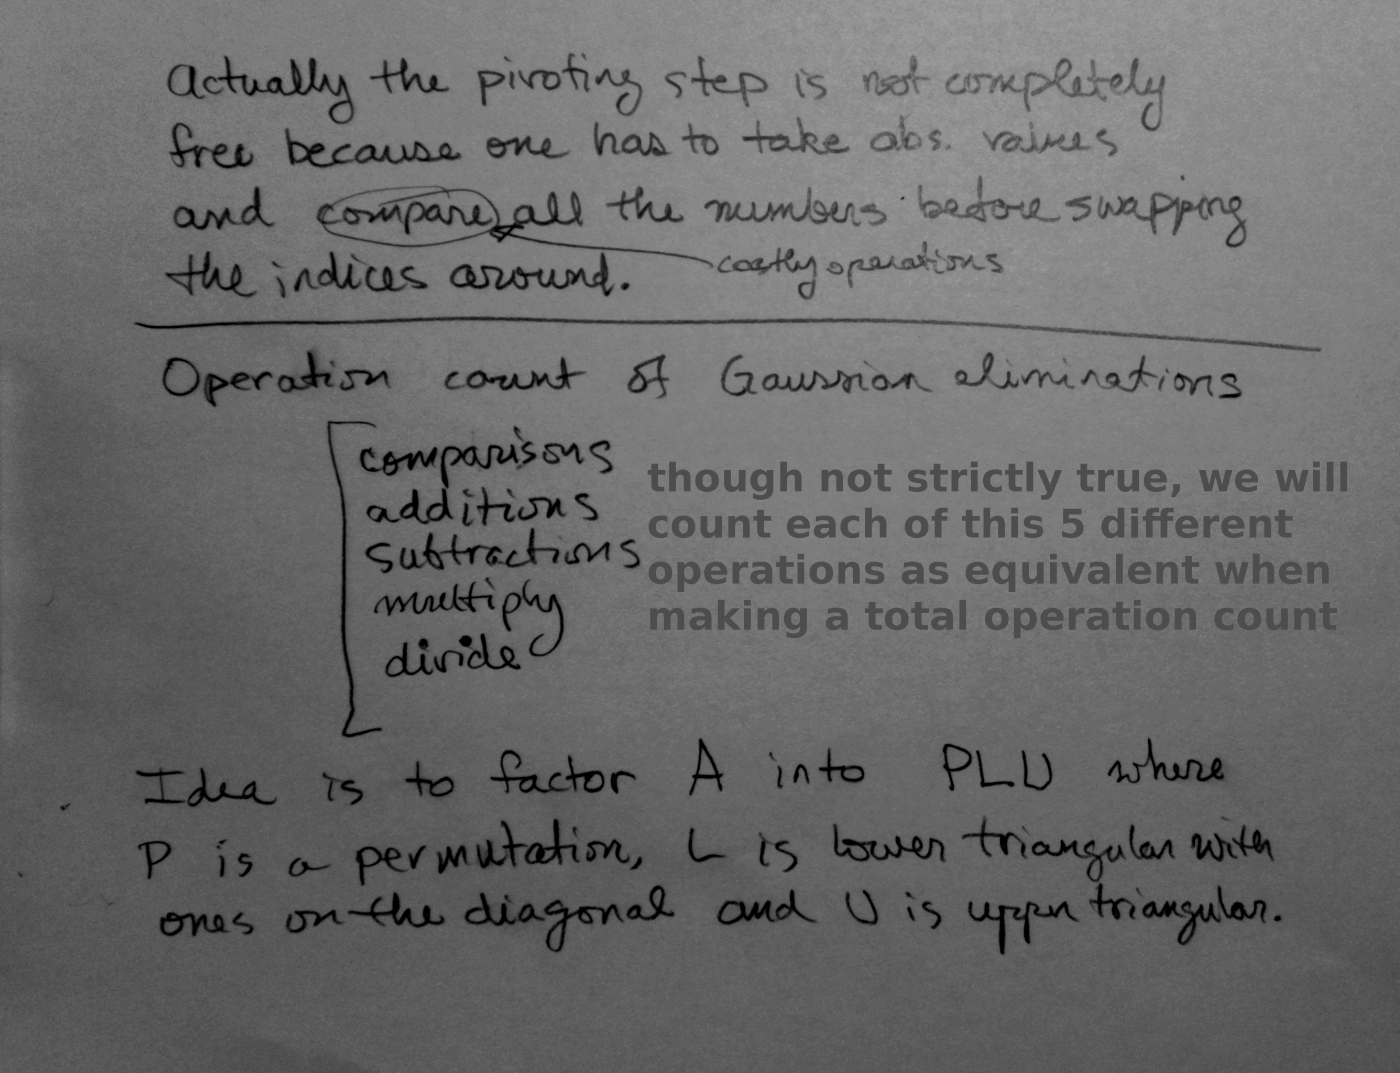 Actually the pivoting step is not completely
free because one has to take abs. values
and compare all the numbers before swapping
the indices around.
costly operations
Operation count of Gaussian eliminations
comparisons
additions
subtractions
multiply
divide
though not strictly true, we will
count each of this 5 different
operations as equivalent when
making a total operation count
Idea is to factor A into PLU where
P is a permutation, L is lower triangular with
ones on the diagonal and U is upper triangular.